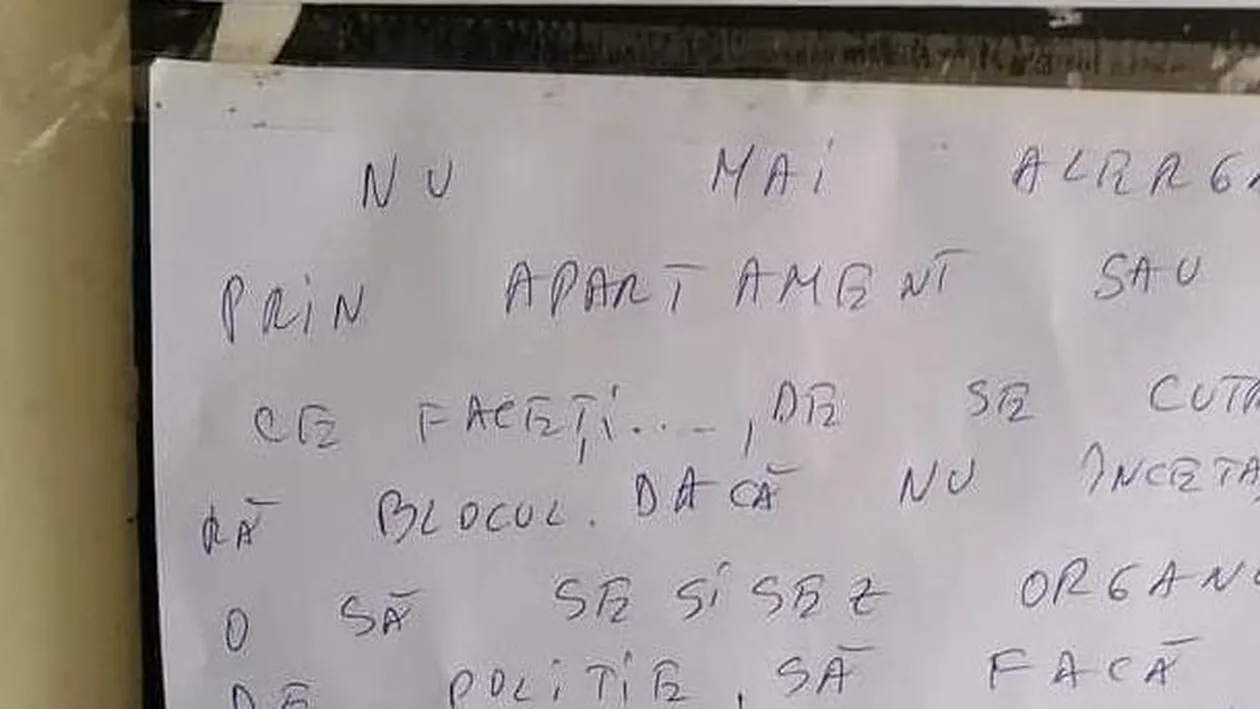 NU MAI ALERGA
PRIN APARTAMENT SAU
CE FACEȚI...., DE SE CUTR
RĂ BLOCUL. DACĂ NU ÎNCETA
O SĂ SE SISEZ ORGAN
DE POLITIE, SĂ FACĂ